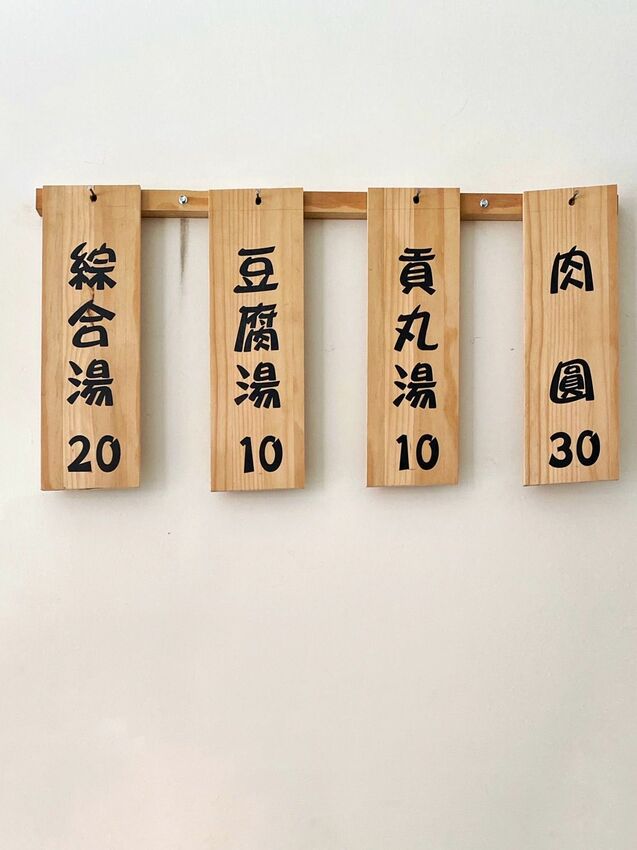 肉圓
30
貢丸湯
10
豆腐湯
10
綜合湯
20